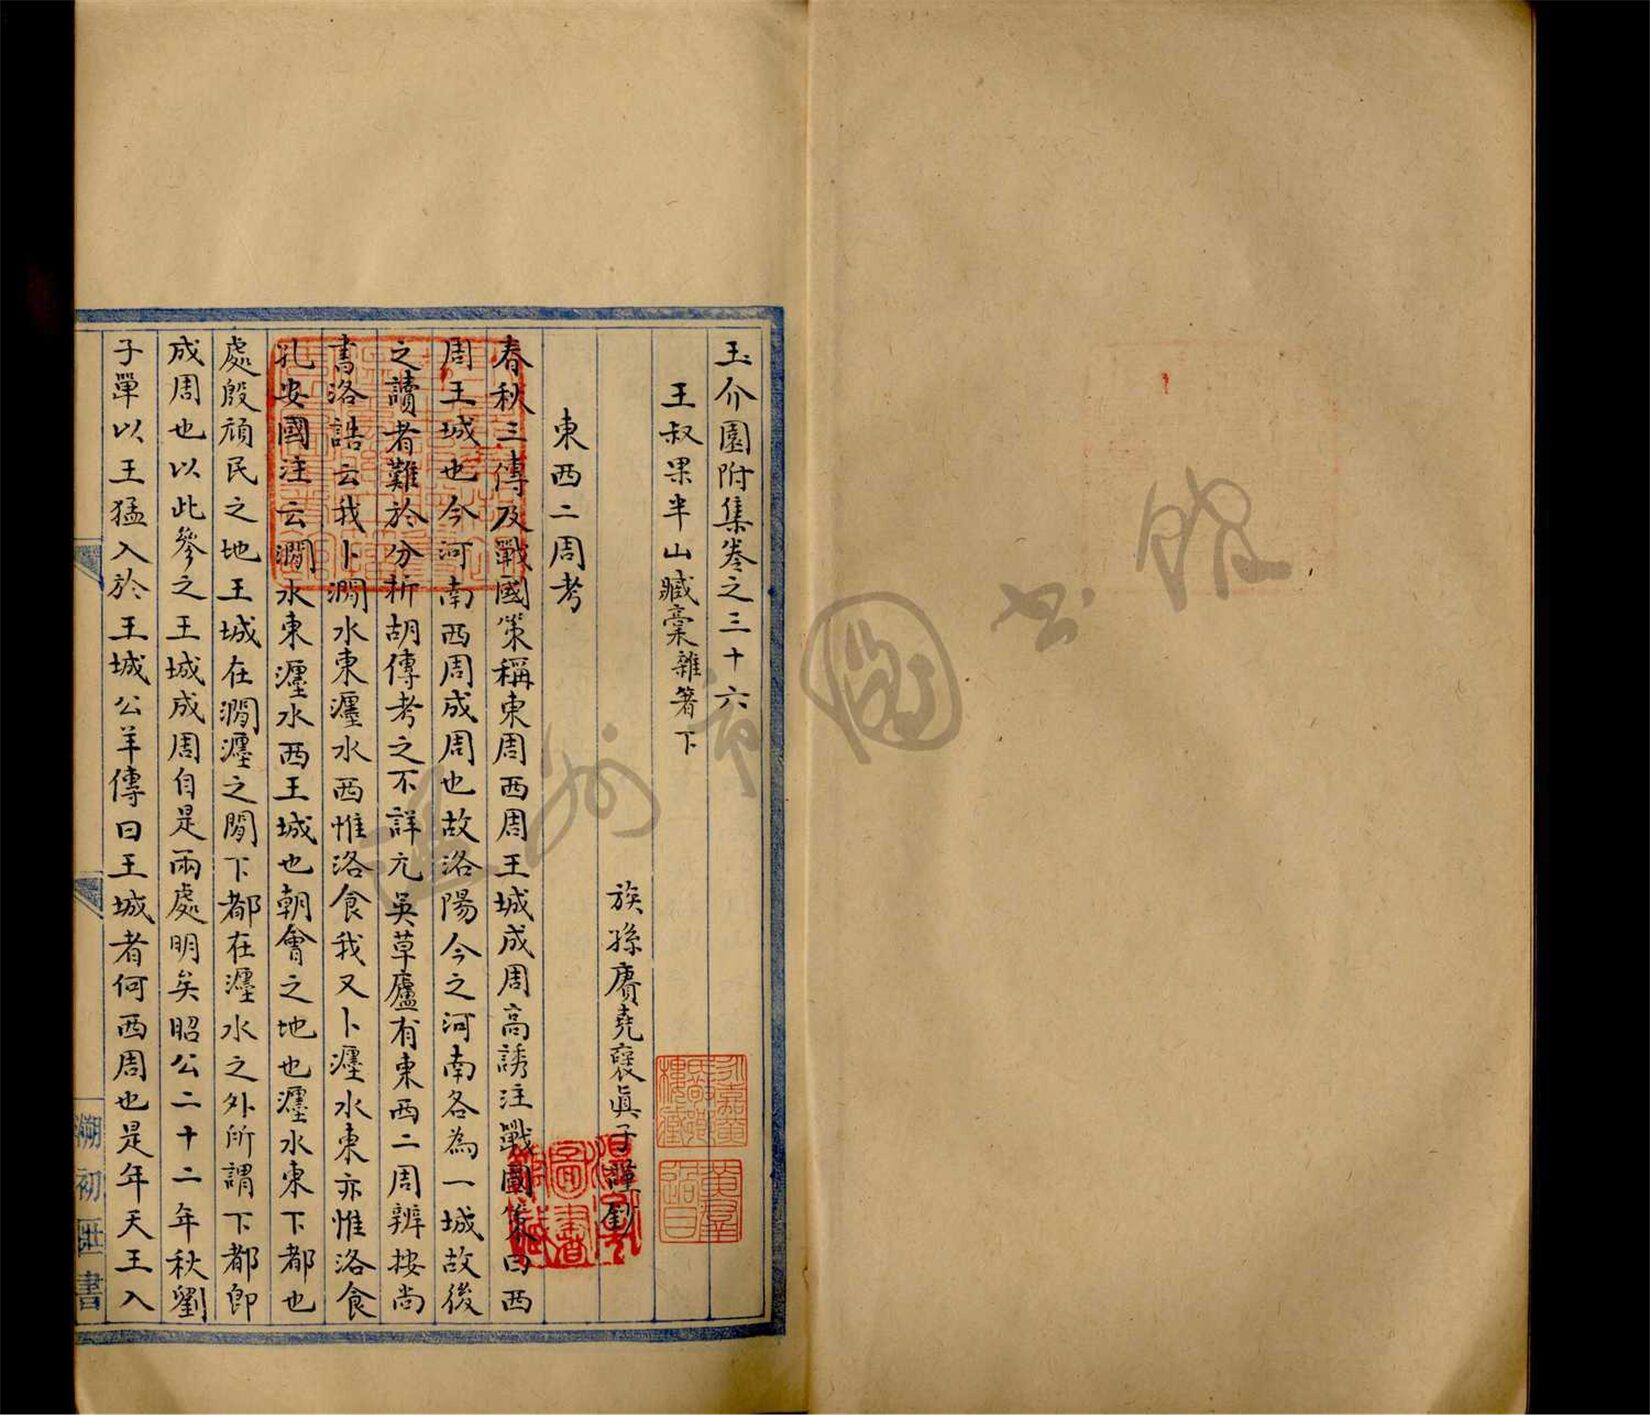 玉介園附集卷之三十六
王叔果半山臧稾雜箸下
族孫賡堯襃眞子謹鈔
東西二周考
春秋三傳及戰國策稱東周西周王城成周高誘注戰國策曰西
周王城也今河南西周成周也故洛陽今之河南各為一城故後
之讀者難於分析胡傳考之不詳亢吳草廬有東西二周辨按尚
書洛誥云我卜澗水東瀍水西惟洛食我又卜瀍水東亦惟洛食
孔安國注云澗水東瀍水西王城也朝會之地也瀍水東下都也
處殷頑民之地王城在澗瀍之閒下都在瀍水之外所謂下都即
成周也以此參之王城成周自是兩處明矣昭公二十二年秋劉
子單以王猛入於王城公羊傳曰王城者何西周也是年天王入
永嘉黃氏敬鄉樓藏
黃群過目
圖書
溯初
書
圖書館